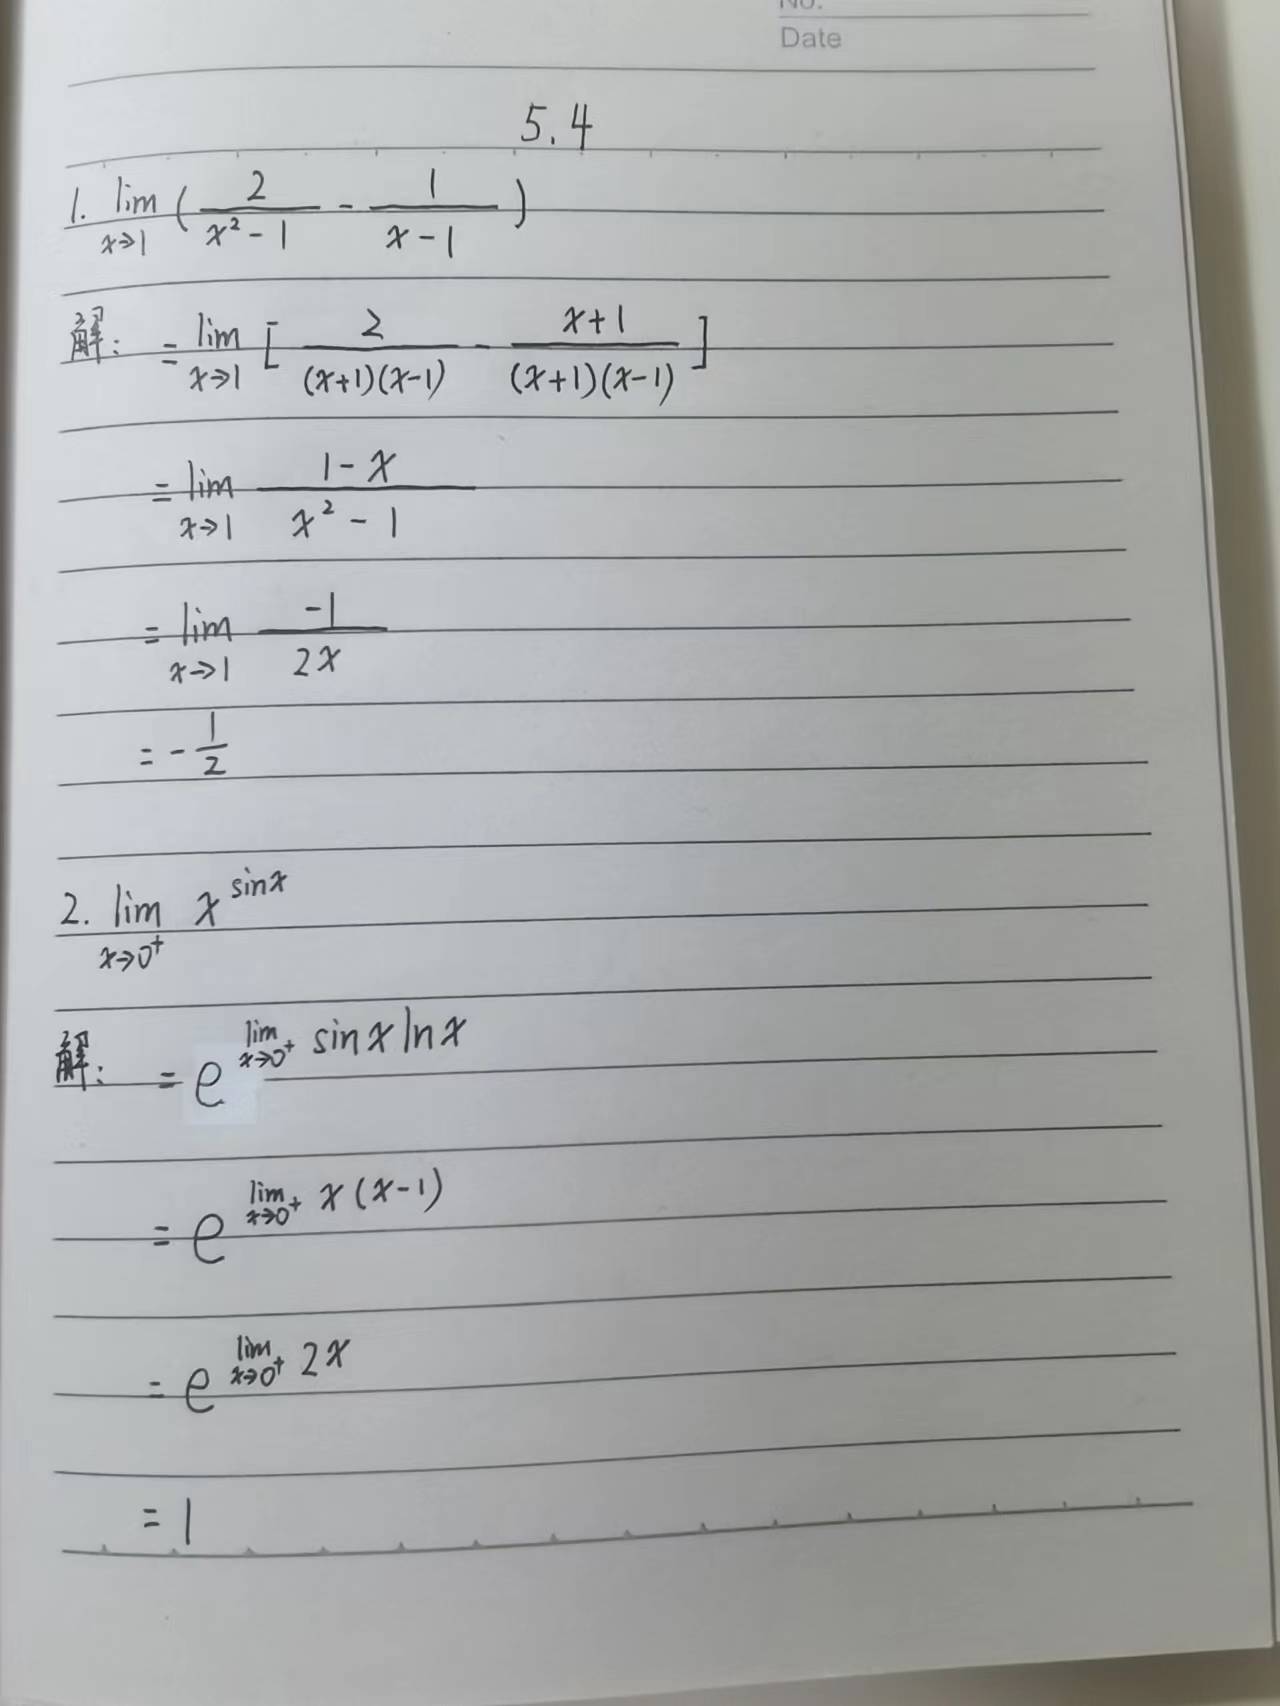 No.
Date
5.4
1. lim_{x→1} ( \frac{2}{x²-1} - \frac{1}{x-1} )
解: = lim_{x→1} [ \frac{2}{(x+1)(x-1)} - \frac{x+1}{(x+1)(x-1)} ]
= lim_{x→1} \frac{1-x}{x²-1}
= lim_{x→1} \frac{-1}{2x}
= -\frac{1}{2}
2. lim_{x→0⁺} x^{sinx}
解: = e^{lim_{x→0⁺} sinx lnx}
= e^{lim_{x→0⁺} x(x-1)}
= e^{lim_{x→0⁺} 2x}
= 1